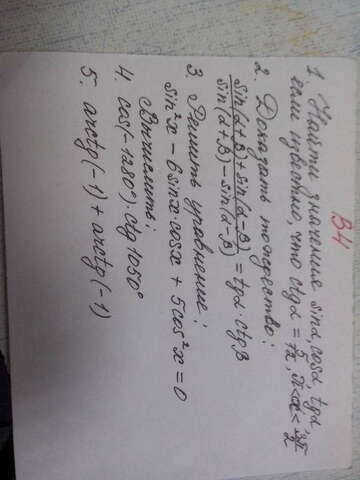 В4
1. Найти значения sinα, cosα, tgα,
если известно, что ctgα = π < α < 3π/2
2. Доказать тождество:
sin(α+β)+sin(α-β)/sin(α+β)-sin(α-β) = tgα·ctgβ
3 Решить уравнение:
sin²x - 6sinx·cosx + 5cos²x = 0
Вычислить:
4. cos(-1280°)·ctg1050°
5. arctg(-1)+arctg(-1)